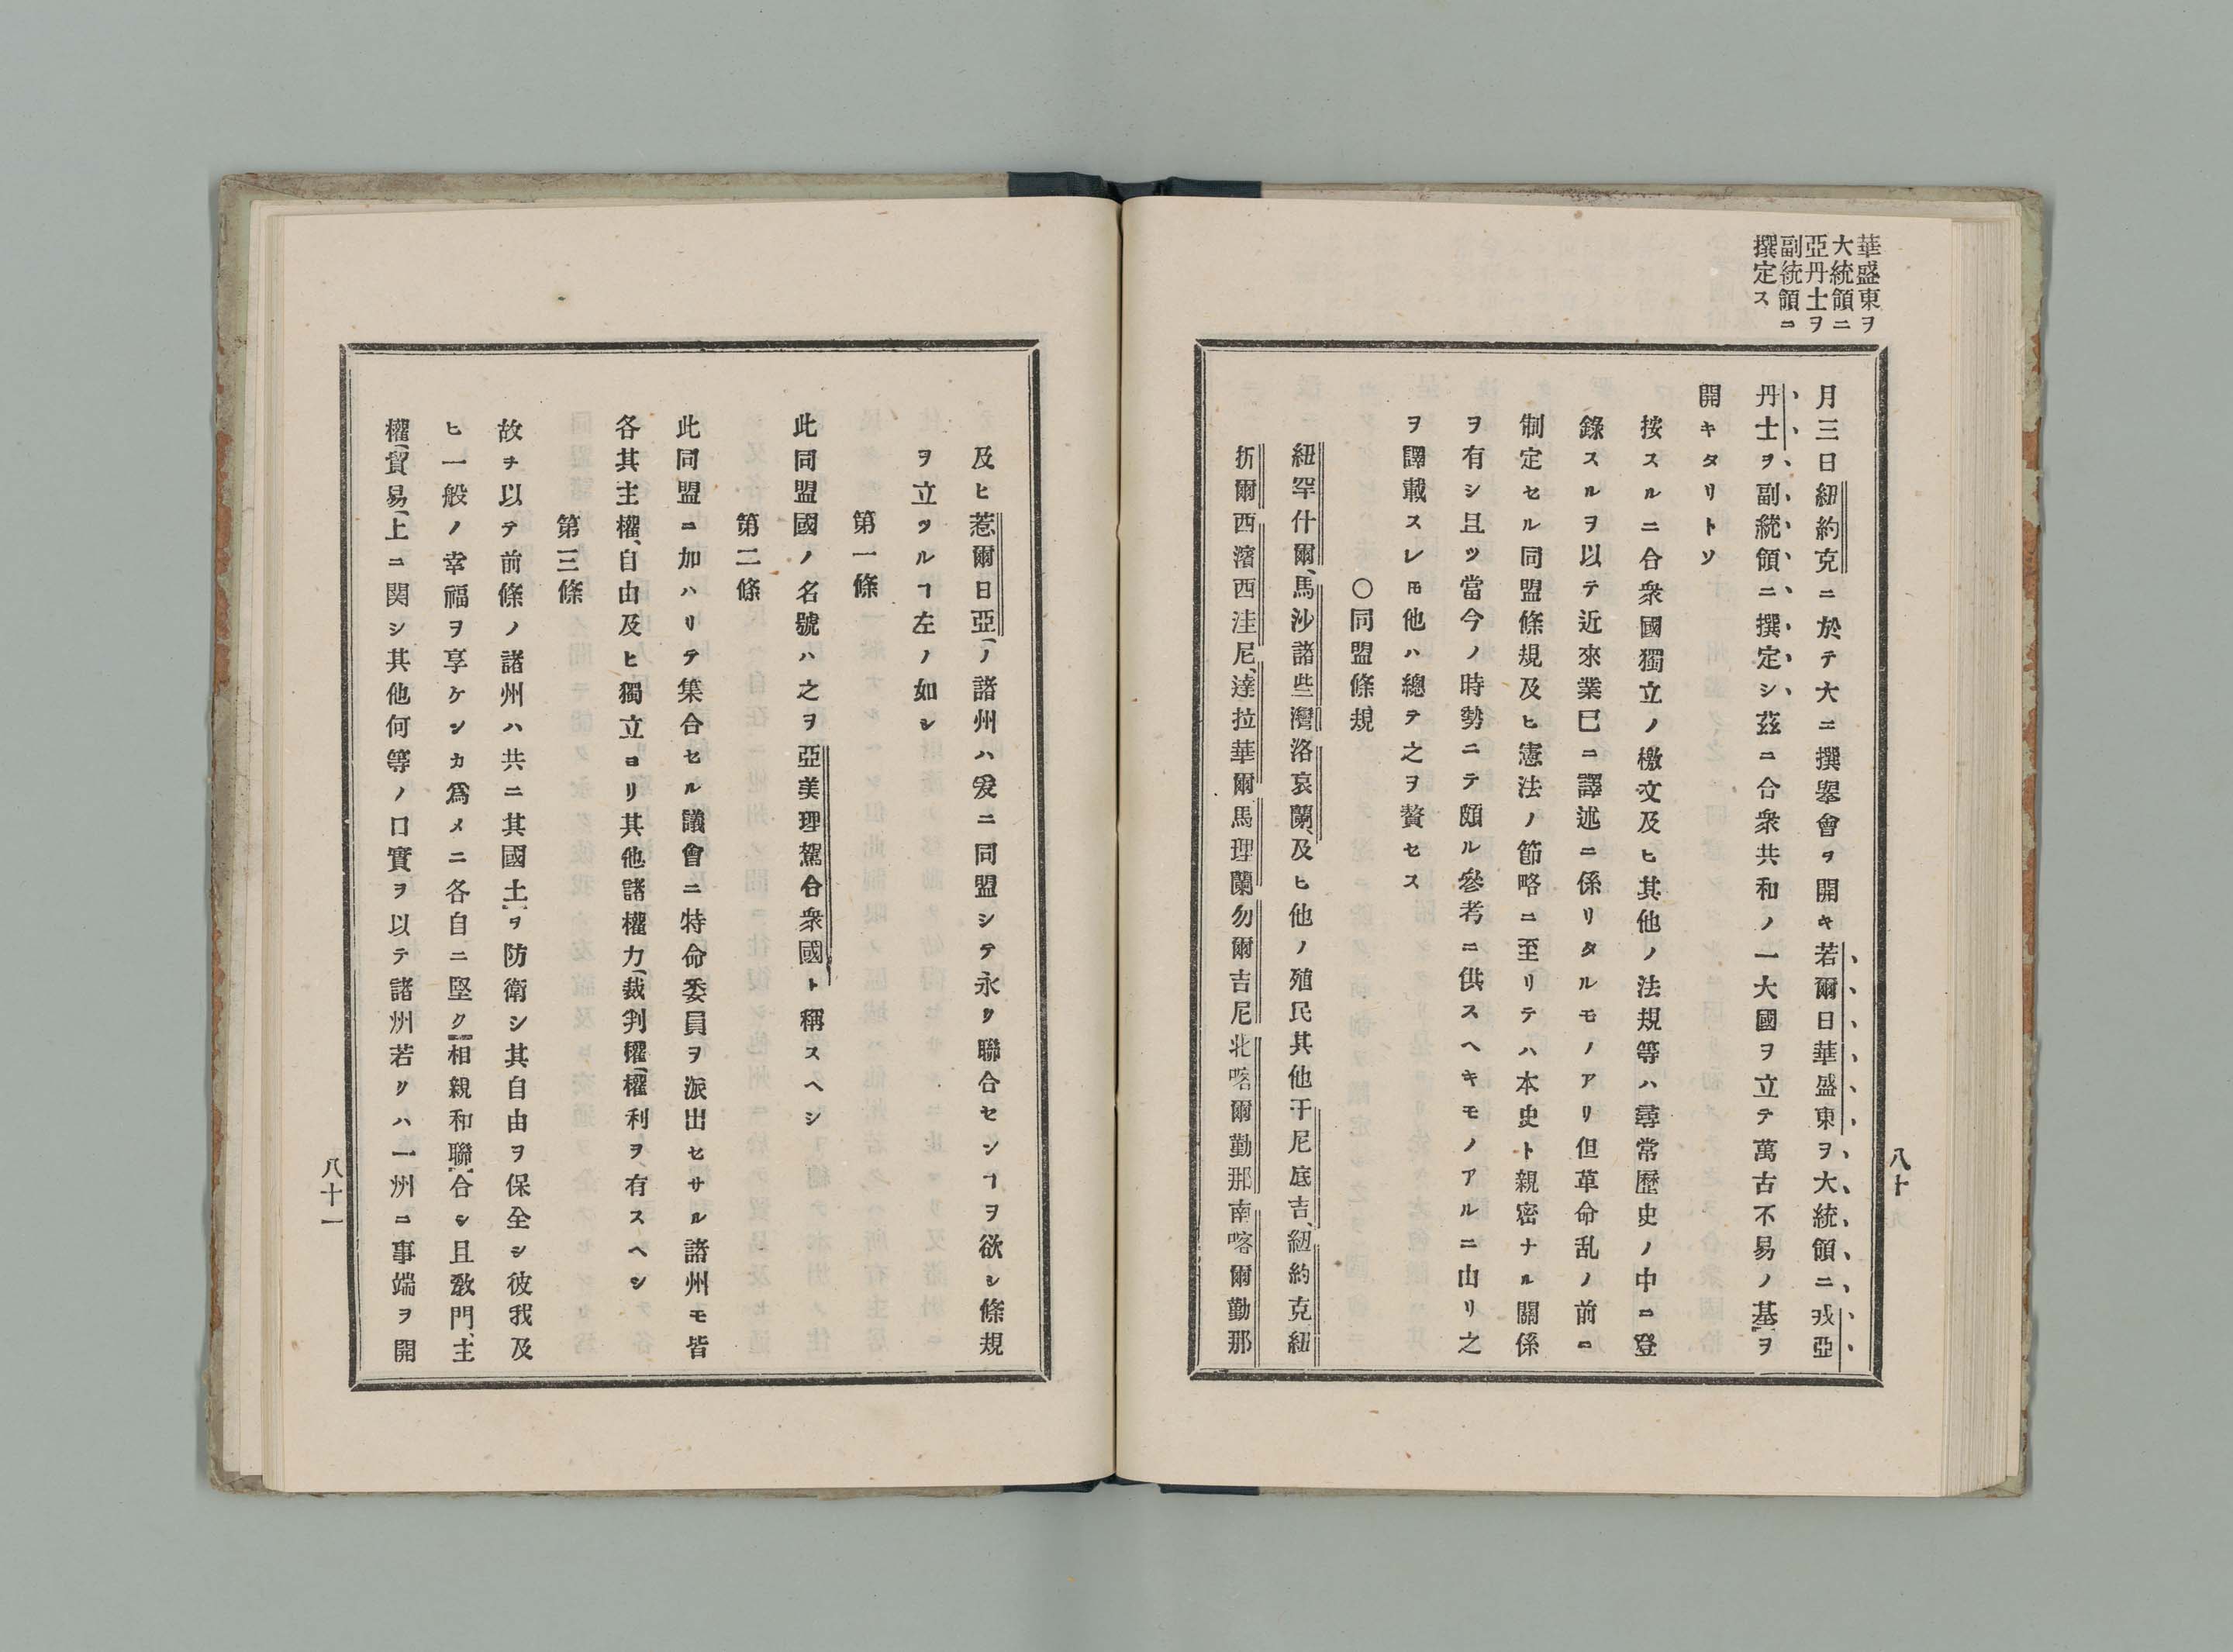 華盛東ヲ
大統領ニ
亞丹士ヲ
副統領ニ
撰定ス
月三日紐約克ニ於テ大ニ撰擧會ヲ開キ若爾日華盛東ヲ大統領ニ戎亞
丹士ヲ副統領ニ撰定シ茲ニ合衆共和ノ一大國ヲ立テ萬古不易ノ基ヲ
開キタリトソ
按スルニ合衆國獨立ノ檄文及ヒ其他ノ法規等ハ尋常歴史ノ中ニ登
錄スルヲ以テ近來業巳ニ譯述ニ係リタルモノアリ但革命乱ノ前ニ
制定セル同盟條規及ヒ憲法ノ節略ニ至リテハ本史ト親密ナル關係
ヲ有シ且ツ當今ノ時勢ニテ頗ル參考ニ供スヘキモノアルニ由リ之
ヲ譯載スレモ他ハ總テ之ヲ贅セス
〇同盟條規
紐罕什爾、馬沙諸些灣洛哀蘭、及ヒ他ノ殖民其他干尼底吉、紐約克紐
折爾西濱西洼尼、達拉華爾馬理蘭勿爾吉尼北喀爾勤那南喀爾勤那
八十
及ヒ惹爾日亞ノ諸州ハ爰ニ同盟シテ永ク聯合センヿヲ欲シ條規
ヲ立ツルヿ左ノ如シ
第一條
此同盟國ノ名號ハ之ヲ亞美理駕合衆國ト稱スヘシ
第二條
此同盟ニ加ハリテ集合セル議會ニ特命委員ヲ派出セサル諸州モ皆
各其主權、自由及ヒ獨立ヨリ其他諸權力、裁判權、權利ヲ有スヘシ
第三條
故ヲ以テ前條ノ諸州ハ共ニ其國土ヲ防衛シ其自由ヲ保全シ彼我及
ヒ一般ノ幸福ヲ享ケンカ爲メニ各自ニ堅ク相親和聯合シ且敎門、主
權、貿易、上ニ関シ其他何等ノ口實ヲ以テ諸州若クハ一州ニ事端ヲ開
八十一